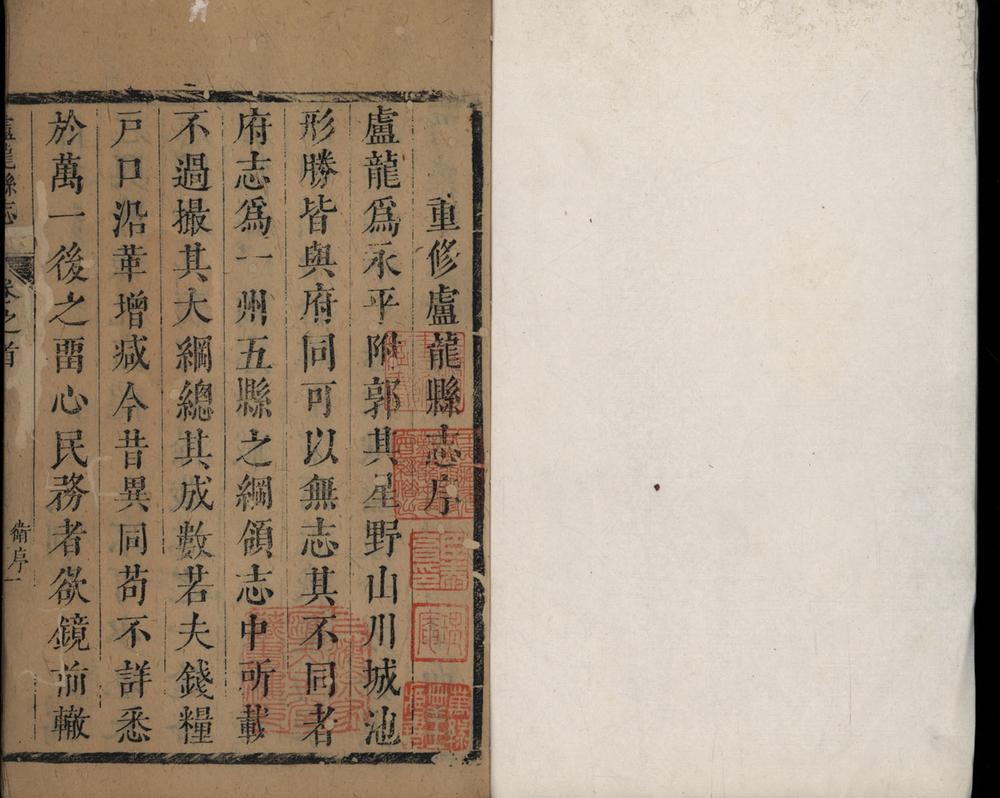 重修盧龍縣志序
盧龍爲永平附郭其星野山川城池
形勝皆與府同可以無志其不同者
府志爲一州五縣之綱領志中所載
不過撮其大綱總其成數若夫錢糧
戸口沿革增減今昔異同苟不詳悉
於萬一後之畱心民務者欲鏡前轍
盧龍縣志
卷之首
衛序一